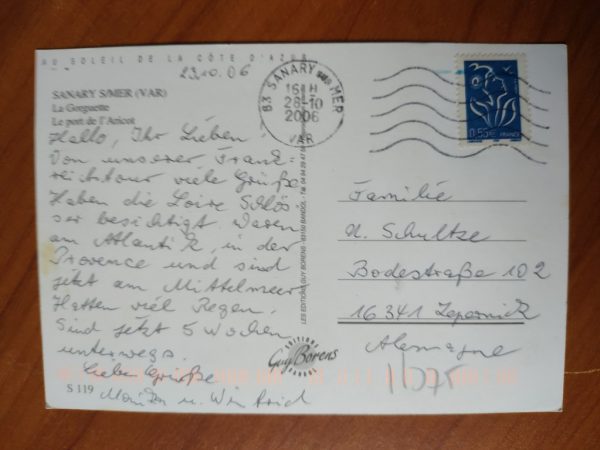 AU SOLEIL DE LA CÔTE D'AZUR
23.10.06
SANARY S/MER (VAR)
La Gorguette
Le port de l'Aricot
Hallo, Ihr Lieben
Von unserer Frank=
reichtour viele Grüße
Haben die Loire Schlös=
ser besichtigt. Waren
am Atlantik, in der
Provence und sind
jetzt am Mittelmeer
Hatten viel Regen.
Sind jetzt 5 Wochen
unterwegs.
Liebe Grüße
Monika u. Winfried
S 119
83 SANARY SUR MER
16 H
28-10
2006
VAR
LES EDITIONS GUY BORENS - 83150 BANDOL - Tél. 04 94 29 47 08
EDITIONS
Guy Borens
BANDOL
0,55€ FRANCE
Familie
N. Schultze
Bodestraße 102
16341 Zepernick
Alemagne